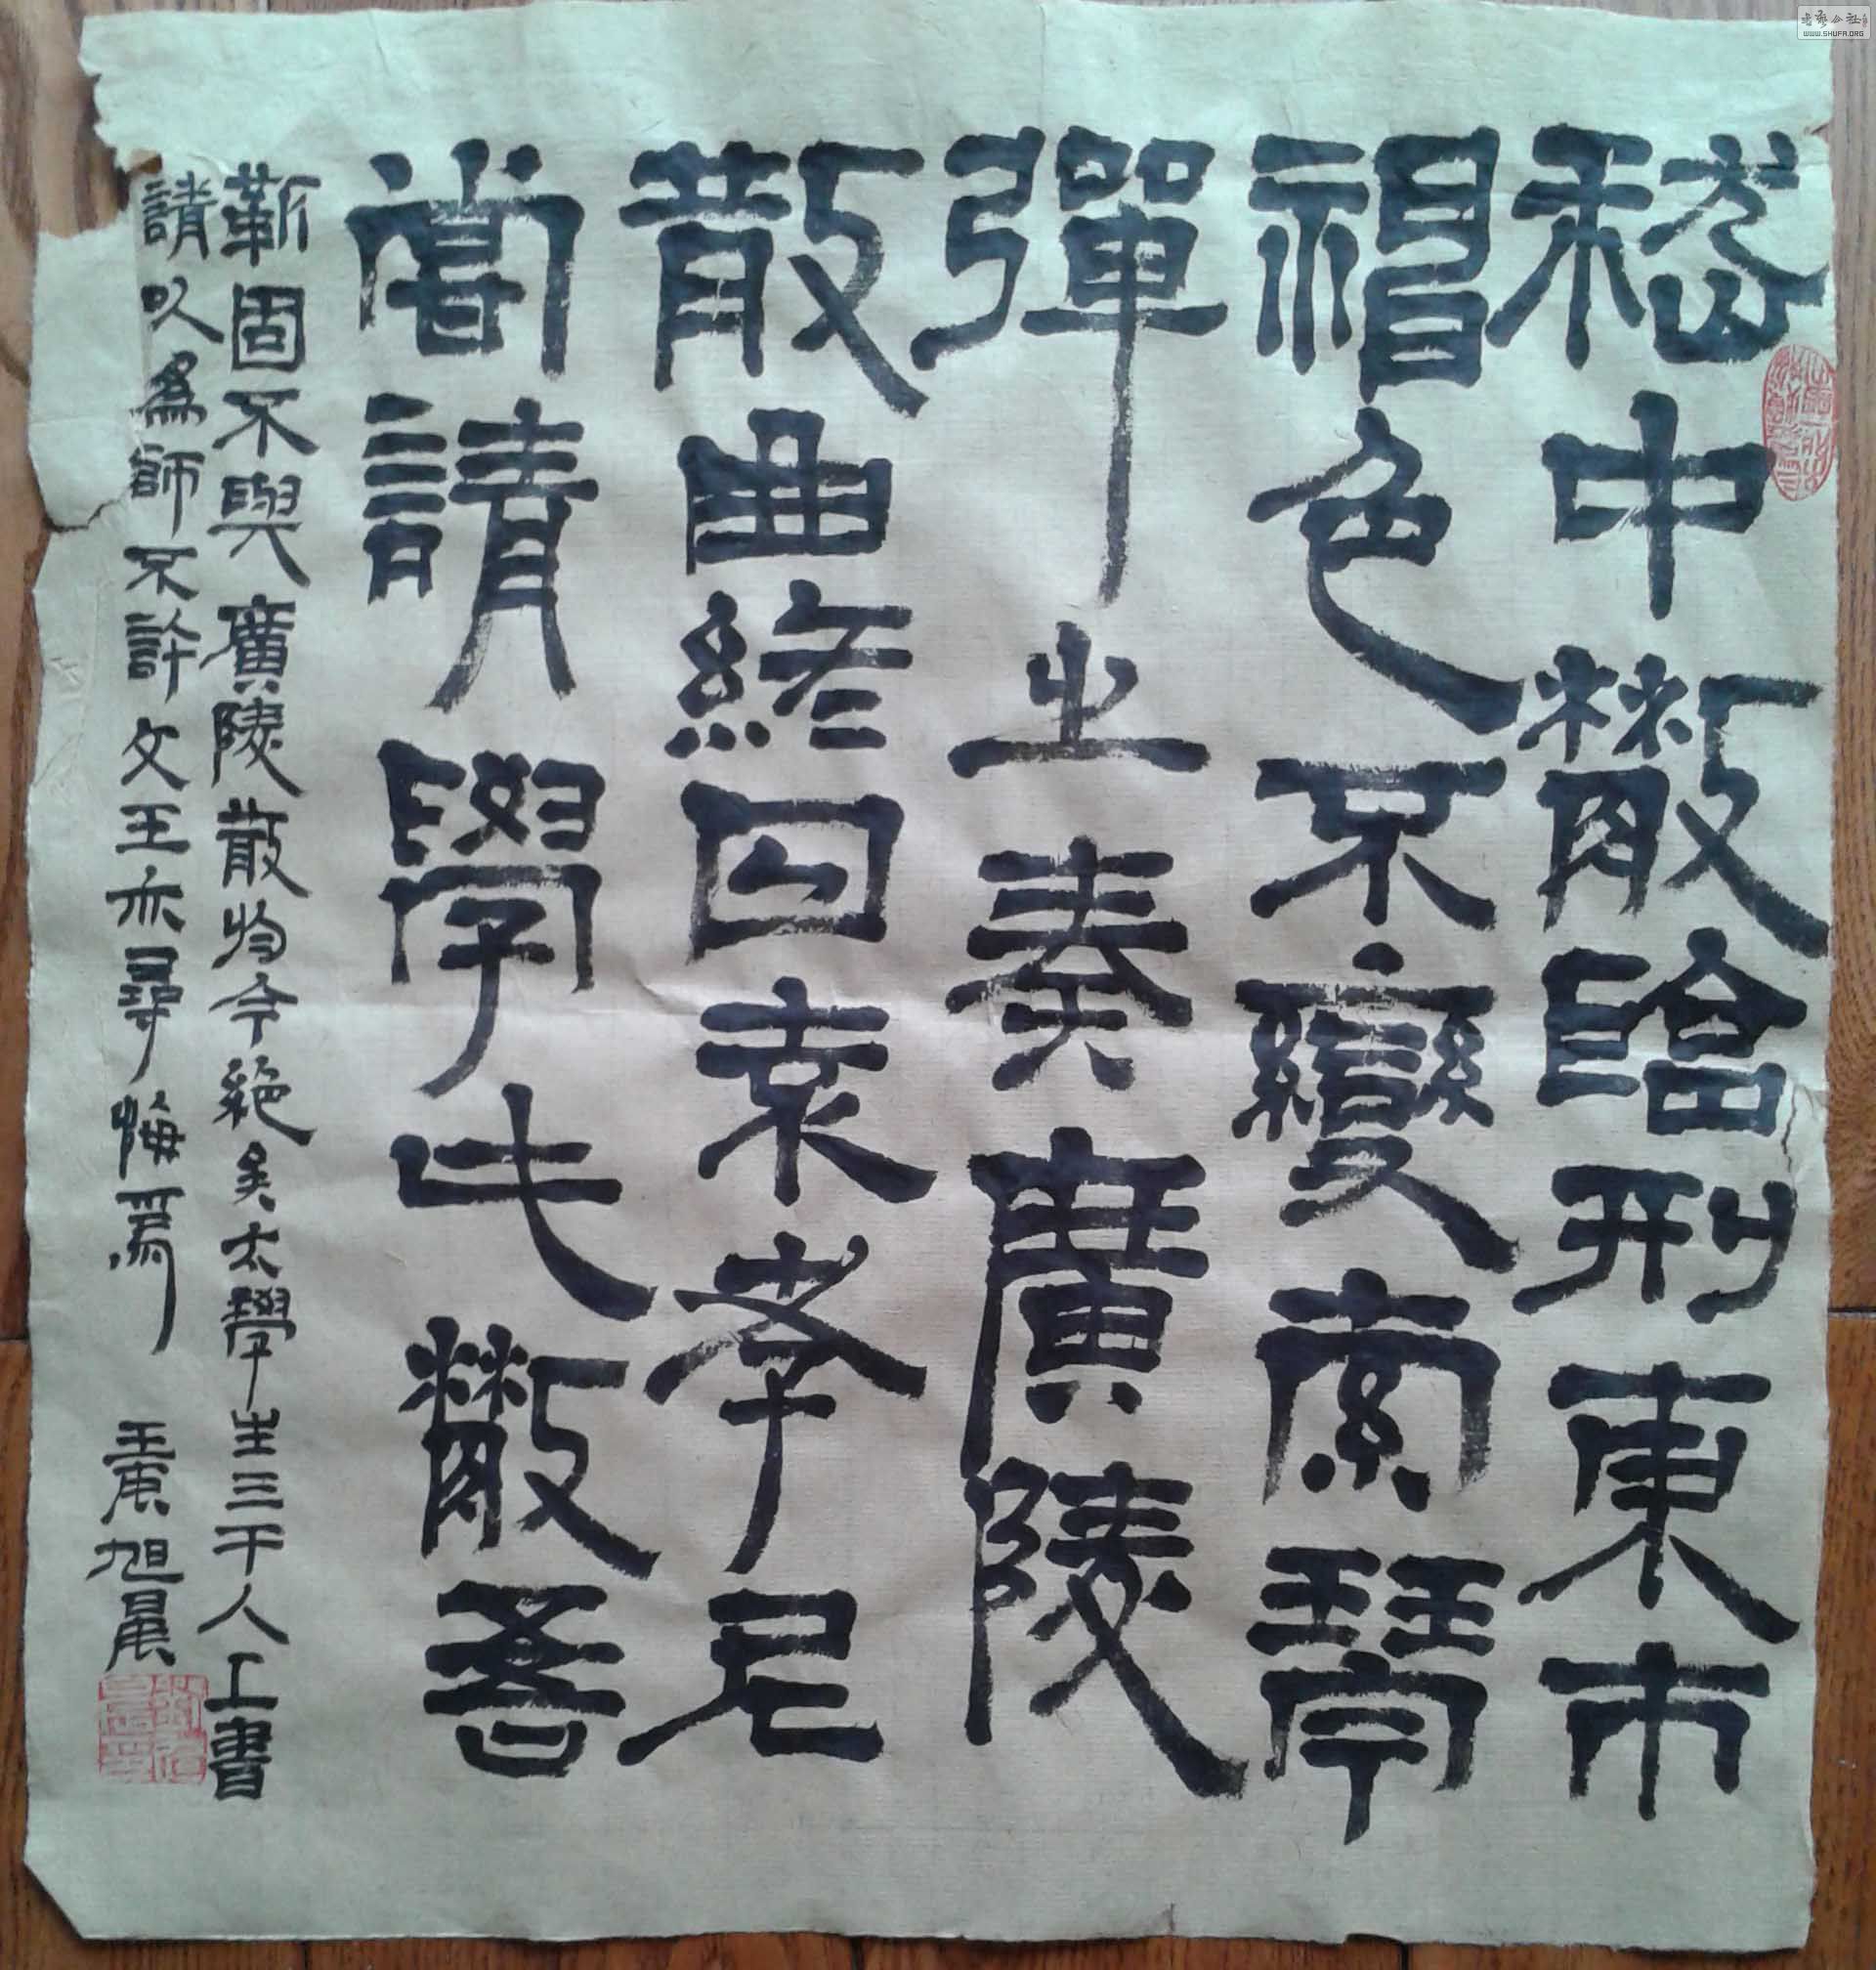 嵇中散臨刑東市
神色不變索琴
彈之奏廣陵
散曲終曰袁孝尼
嘗請學此散吾
靳固不與廣陵散於今絕矣太學生三千人上書
請以為師不許文王亦尋悔焉 王廣旭晨
書法公社
WWW.SHUFA.ORG